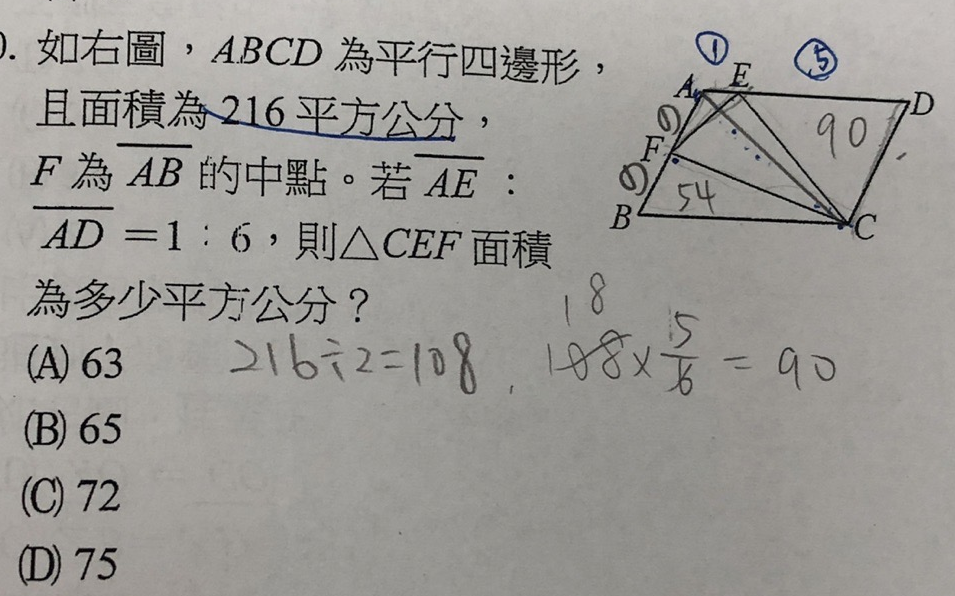 0. 如右圖，ABCD 為平行四邊形，
且面積為 216 平方公分，
F 為 AB 的中點。若 AE：
AD =1：6，則△CEF 面積
為多少平方公分？
(A) 63
(B) 65
(C) 72
(D) 75
① ⑤
A E D
90
F
54
B C
216÷2=108 , 108×5/6 = 90
18